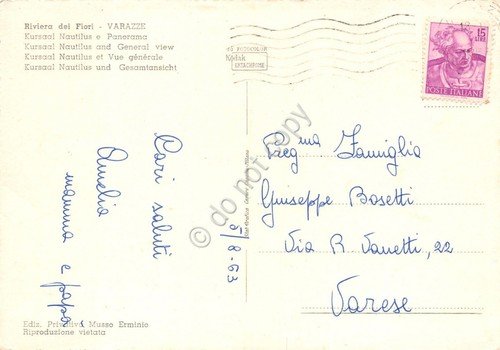 Riviera dei Fiori - VARAZZE
Kursaal Nautilus e Panorama
Kursaal Nautilus and General view
Kursaal Nautilus et Vue générale
Kursaal Nautilus und Gesamtansicht
Kodak
EKTACHROME
15
LIRE
POSTE ITALIANE
Cari saluti
Amelia
mamma e papà
5/8-63
Preg.ma Famiglia
Giuseppe Bosetti
Via R. Vanetti, 22
Varese
Ediz. Privativa Musso Erminio
Riproduzione vietata
© do not copy